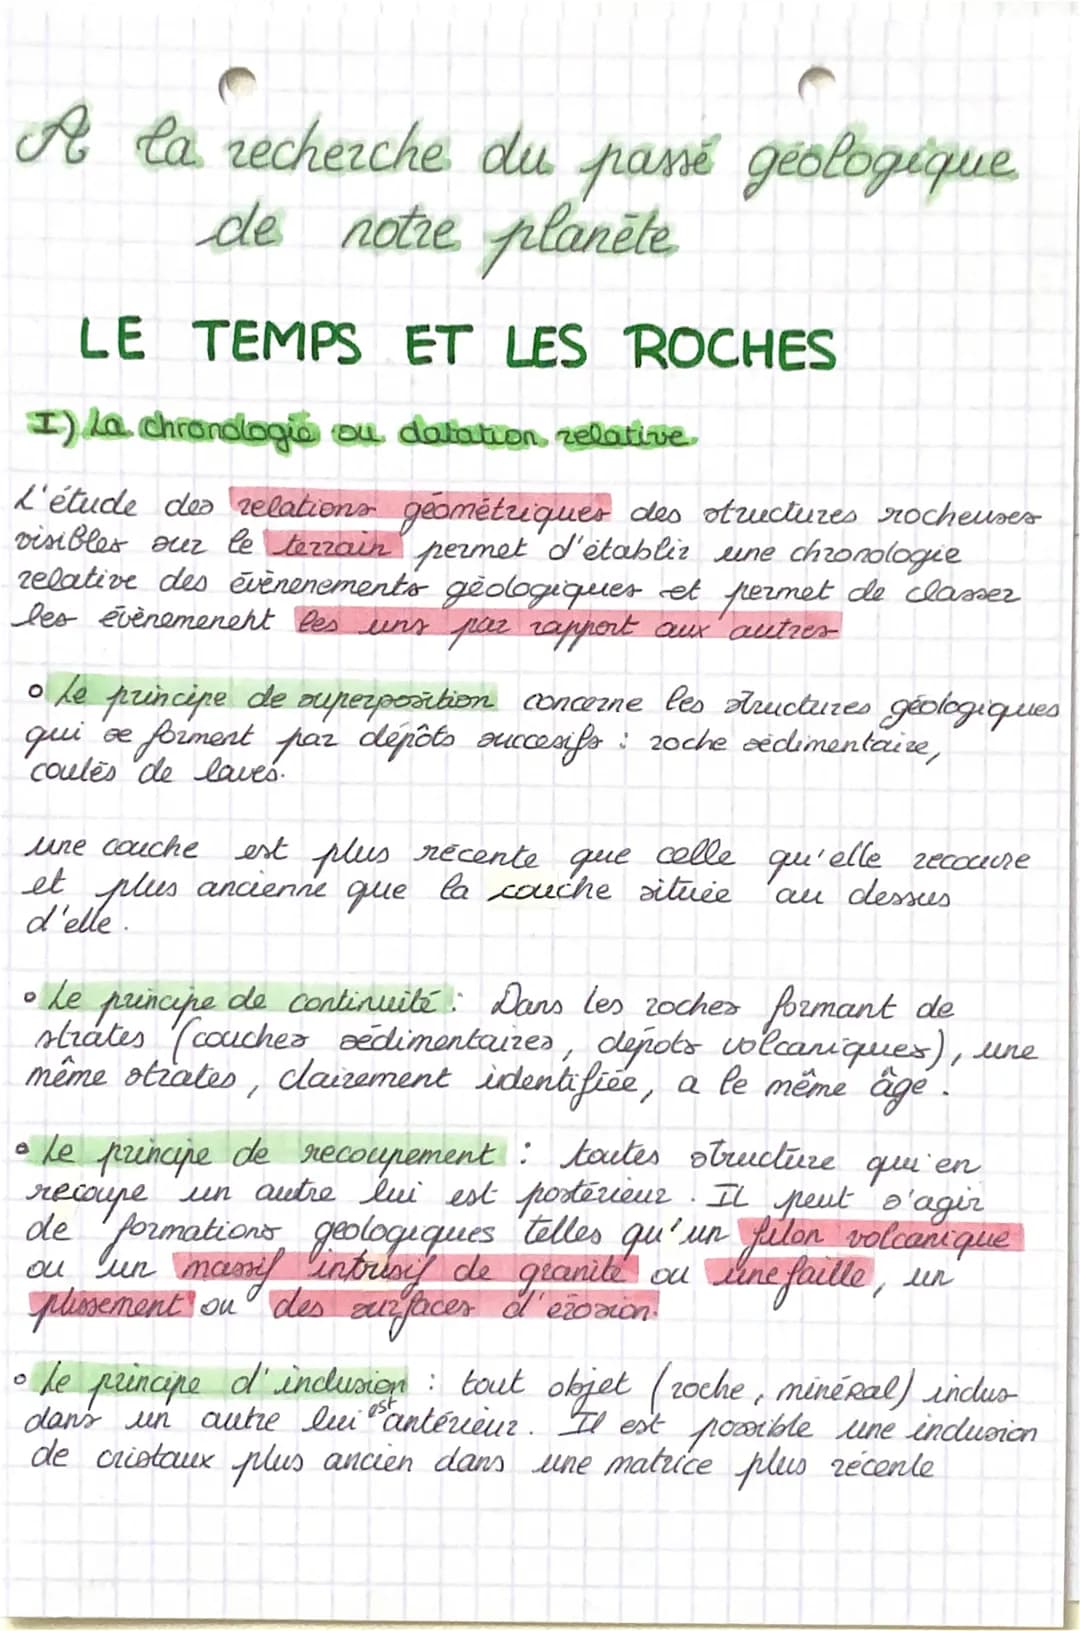 A la recherche du passé géologique
de notre planète
LE TEMPS ET LES ROCHES
I) La chronologie ou datation relative
L'étude des relations géométriques des structures rocheuses
visibles sur le terrain permet d'établir une chronologie
relative des évènenements géologiques et permet de classer
les évènemenent les uns par rapport aux autres
o Le principe de superposition concerne les structures géologiques
qui se forment par dépôts succesifs : roche sédimentaire,
coulés de laves.
une couche est plus récente que celle qu'elle recouvre
et plus ancienne que la couche située au dessus
d'elle.
o Le principe de continuité : Dans les roches formant de
strates (couches sédimentaires, dépots volcaniques), une
même strates, clairement identifiée, a le même âge.
o Le principe de recoupement : toutes structure qui en
recoupe un autre lui est postérieur. Il peut s'agir
de formations géologiques telles qu'un filon volcanique
ou un massif intrusif de granite ou une faille, un
plissement ou des surfaces d'érosion.
o Le principe d'inclusion : tout objet (roche, minéral) inclus
dans un autre lui est antérieur. Il est possible une inclusion
de cristaux plus ancien dans une matrice plus récente